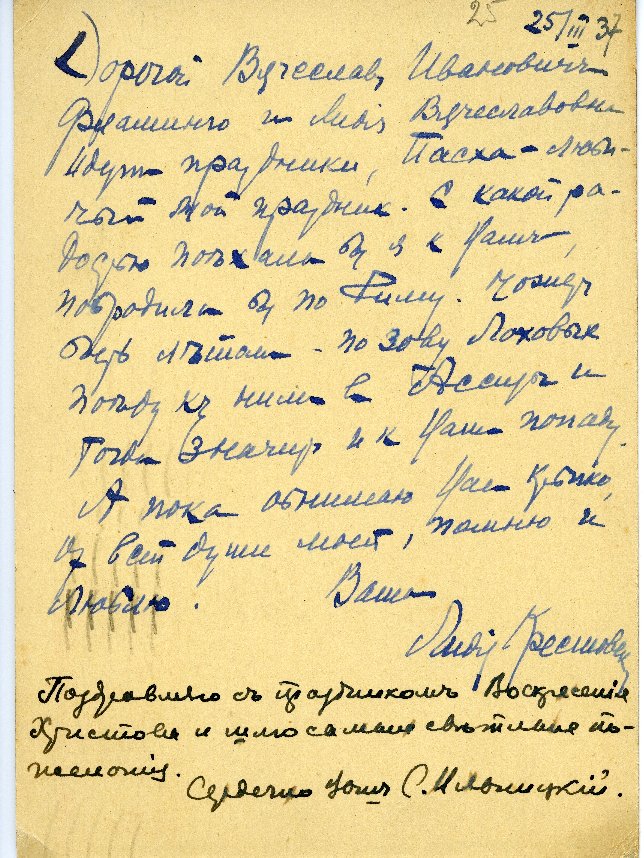 25
25/III 37
Дорогой Вячеслав Иванович
Фламинго и Лидія Вячеславовна
Идутъ праздники, Пасха – люби-
мый мой праздник. С какой ра-
достью поѣхала бы я к Вамъ,
побродила бы по Риму. Может
быть лѣтом – по зову Лоховых
поѣду къ ним в и
тогда значит и к Вам попаду.
А пока обнимаю Вас крѣпко,
от всей души моей, помню и
люблю. Ваша
Лидія Крестовск
Поздравляю съ праздникомъ Воскресенія
Христова и шлю самыя свѣтлыя по-
желанія.
Сердечно Вашъ С.